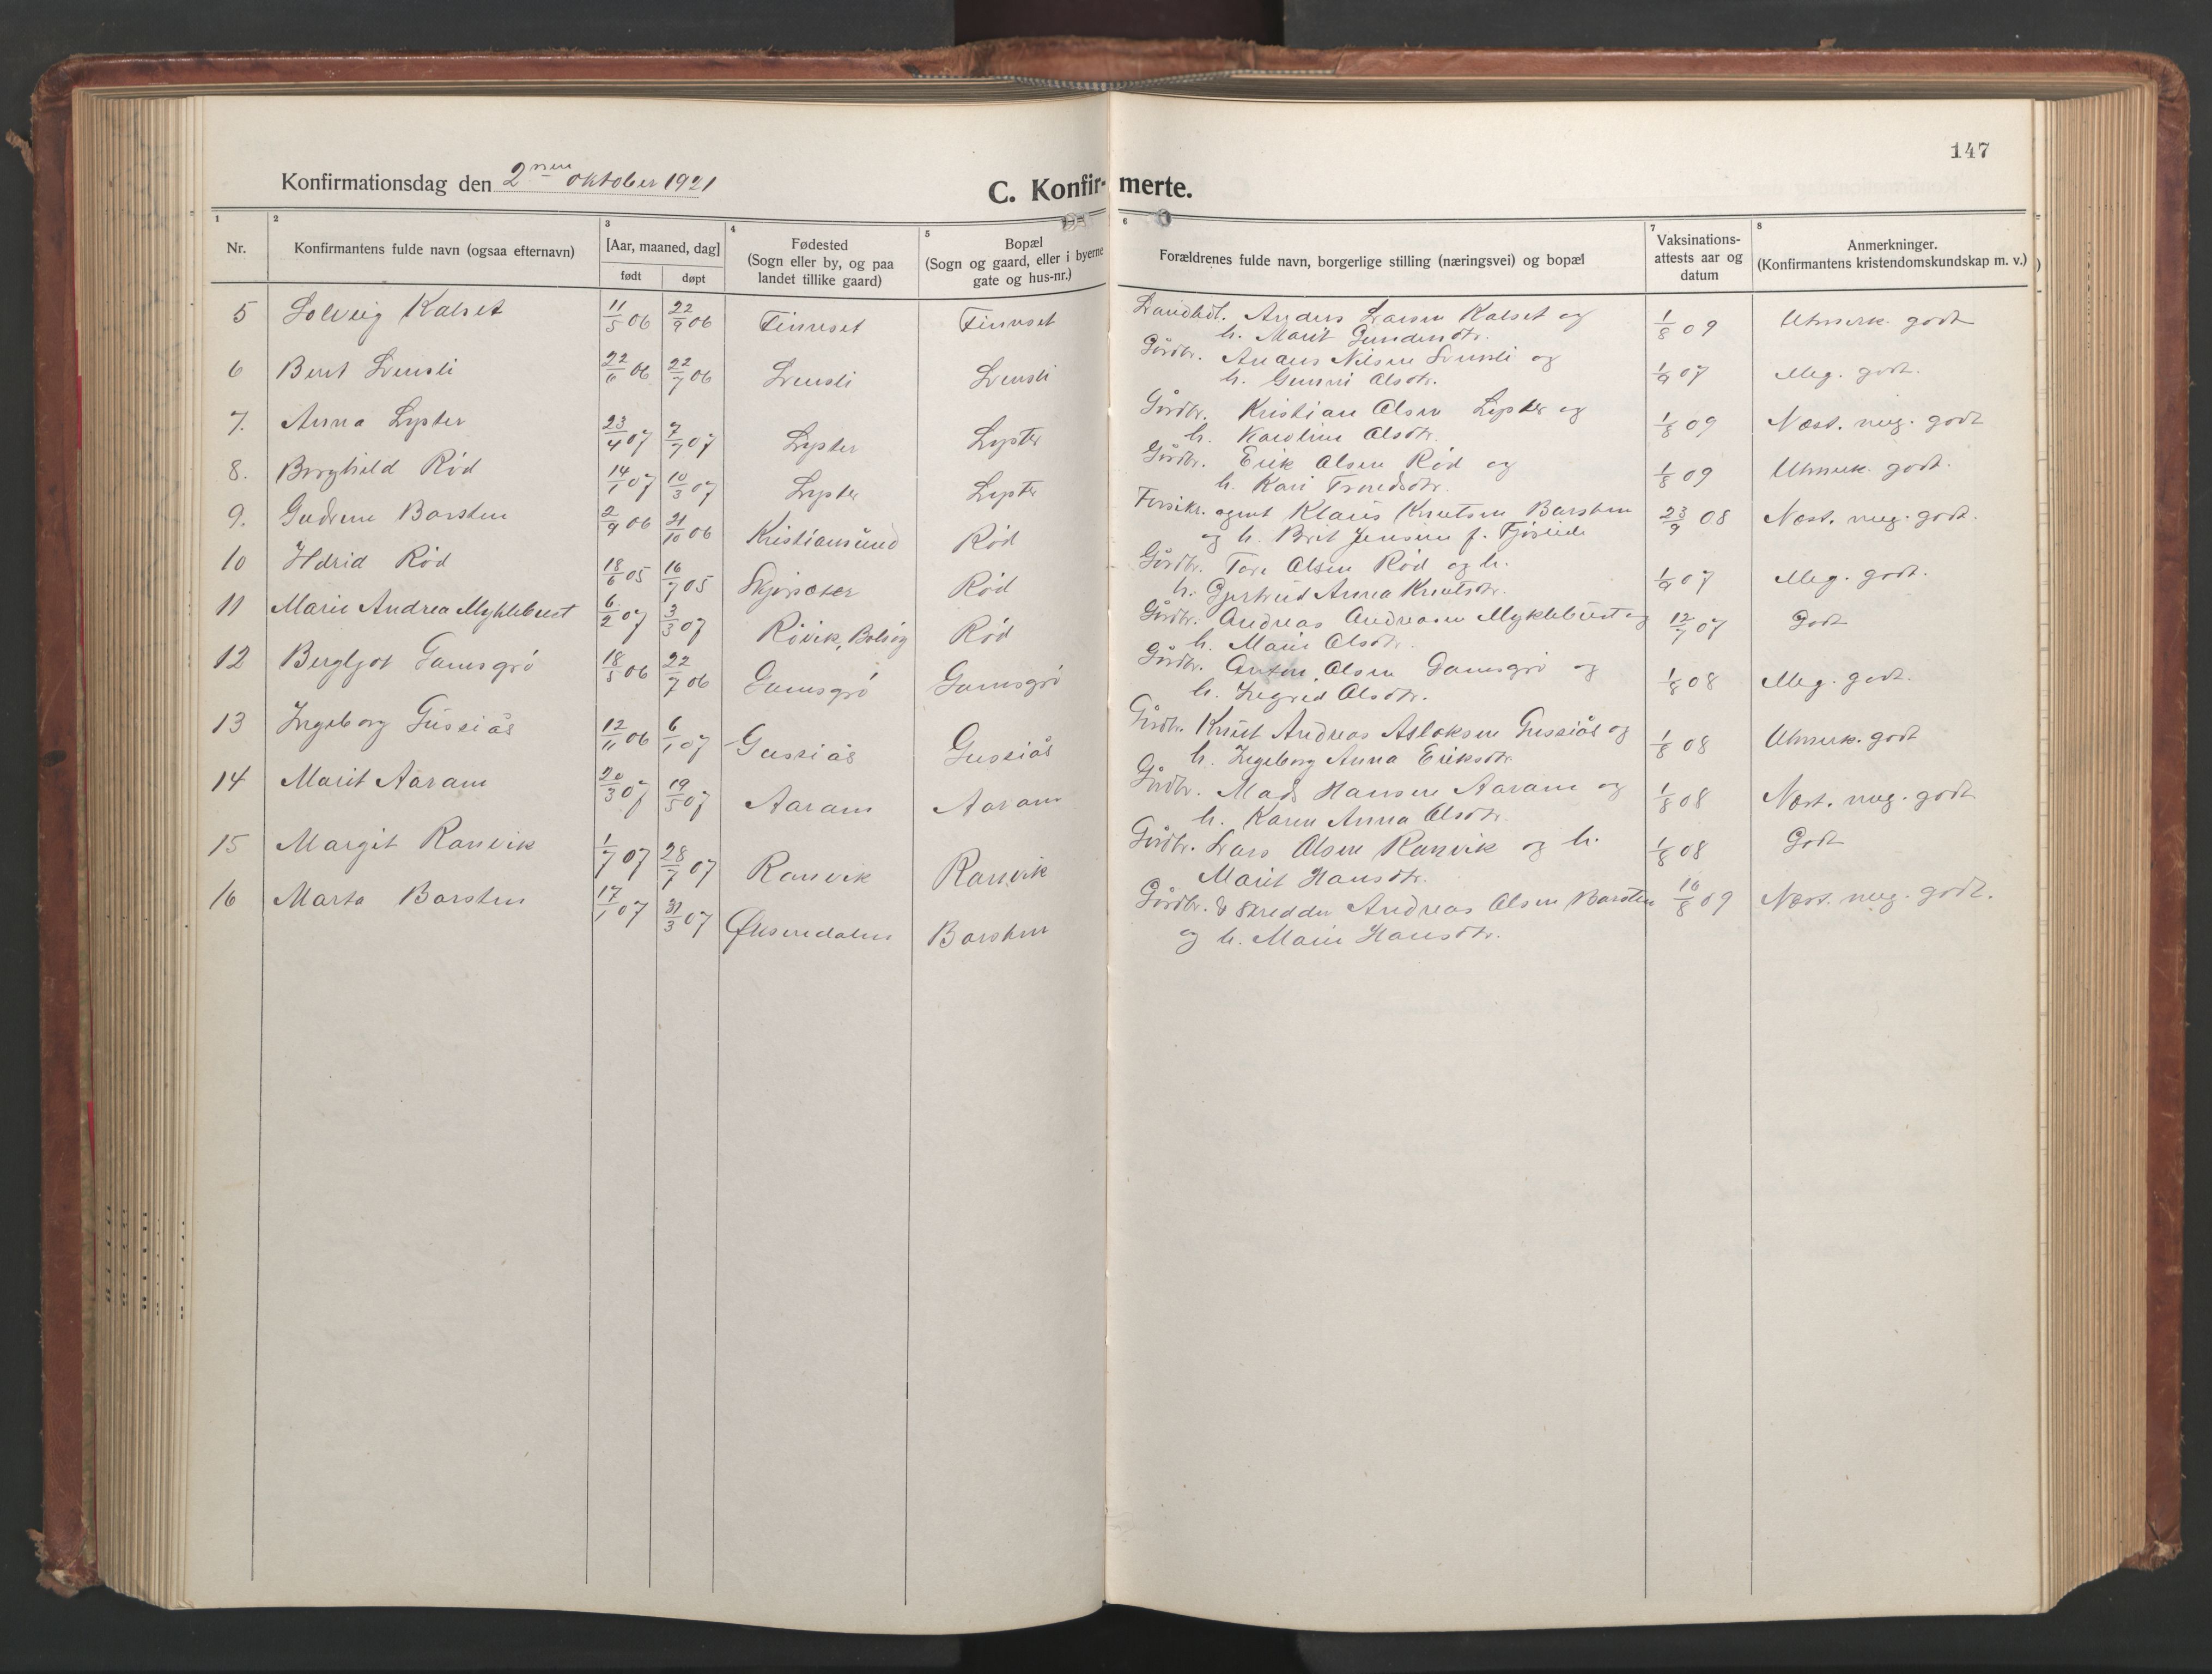 147
Konfirmationsdag den 2nen oktober 1921
C. Konfir- merte.
1 2 3 4 5 6 7 8
Nr. Konfirmantens fulde navn (ogsaa efternavn) [Aar, maaned, dag] født døpt Fødested (Sogn eller by, og paa landet tillike gaard) Bopæl (Sogn og gaard, eller i byerne gate og hus-nr.) Forældrenes fulde navn, borgerlige stilling (næringsvei) og bopæl Vaksinations-attests aar og datum Anmerkninger. (Konfirmantens kristendomskundskap m. v.)
5 Solveig Kalset 11/5 06 22/9 06 Finnset Finnset Landhdl. Anders Larsen Kalset og 1/8 09 Utmerk. godt
h. Marit
6 Berit Svensli 22/ 06 22/7 06 Svensli Svensli Gårdbr. Anders Nilsen Svensli og 1/9 07 Meg. godt.
h. Gunni Olsdtr.
7. Anna Lyster 23/4 07 7/7 07 Lyster Lyster Gårdbr. Kristian Olsen Lyster og 1/8 09 Næst. meg. godt
h. Karoline Olsdtr.
8. Borghild Rød 14/1 07 10/3 07 Lyster Lyster Gårdbr. Erik Olsen Rød og 1/8 09 Utmerk. godt.
h. Kari Trondsdtr.
9. Gudrun Barsten 2/9 06 21/10 06 Kristiansund Rød Forsikr. agent Klaus Knutsen Barsten 23/9 08 Næst. meg. godt.
og h. Brit Jensine f.
10 Rød 18/6 05 16/7 05 Rød Gårdbr. Tore Olsen Rød og h. 1/9 07 Meg. godt.
h. Gjertrud Anna Knutsdtr.
11 Marie Andrea Myklebust 6/2 07 3/3 07 Røvik, Bolsøy Rød Gårdbr. Andreas Andreasen Myklebust og 12/7 07 Godt
h. Marie Olsdtr.
12 Bergljot Gamsgrø 18/5 06 22/7 06 Gamsgrø Gamsgrø Gårdbr. Anton Olsen Gamsgrø og 1/8 08 Meg. godt.
h. Ingrid Olsdtr.
13 Ingeborg Gussiås 12/11 06 6/1 07 Gussiås Gussiås Gårdbr. Knut Andreas Aslaksen Gussiås og 1/8 08 Utmerk. godt
h. Ingeborg Anna Eriksdtr.
14 Marit Aaram 20/3 07 19/5 07 Aaram Aaram Gårdbr. Mads Hansen Aaram og 1/8 08 Næst. meg. godt
h. Karen Anna Olsdtr.
15 Margit Ranvik 1/7 07 28/7 07 Ranvik Ranvik Gårdbr. Lars Olsen Ranvik og h. 1/8 08 Godt
Marit Hansdtr.
16 Marta Barsten 17/1 07 31/3 07 Øksendalen Barsten Gårdbr. & skredder Andreas Olsen Barsten 16/8 09 Næst. meg. godt.
og h. Marie Hansdtr.